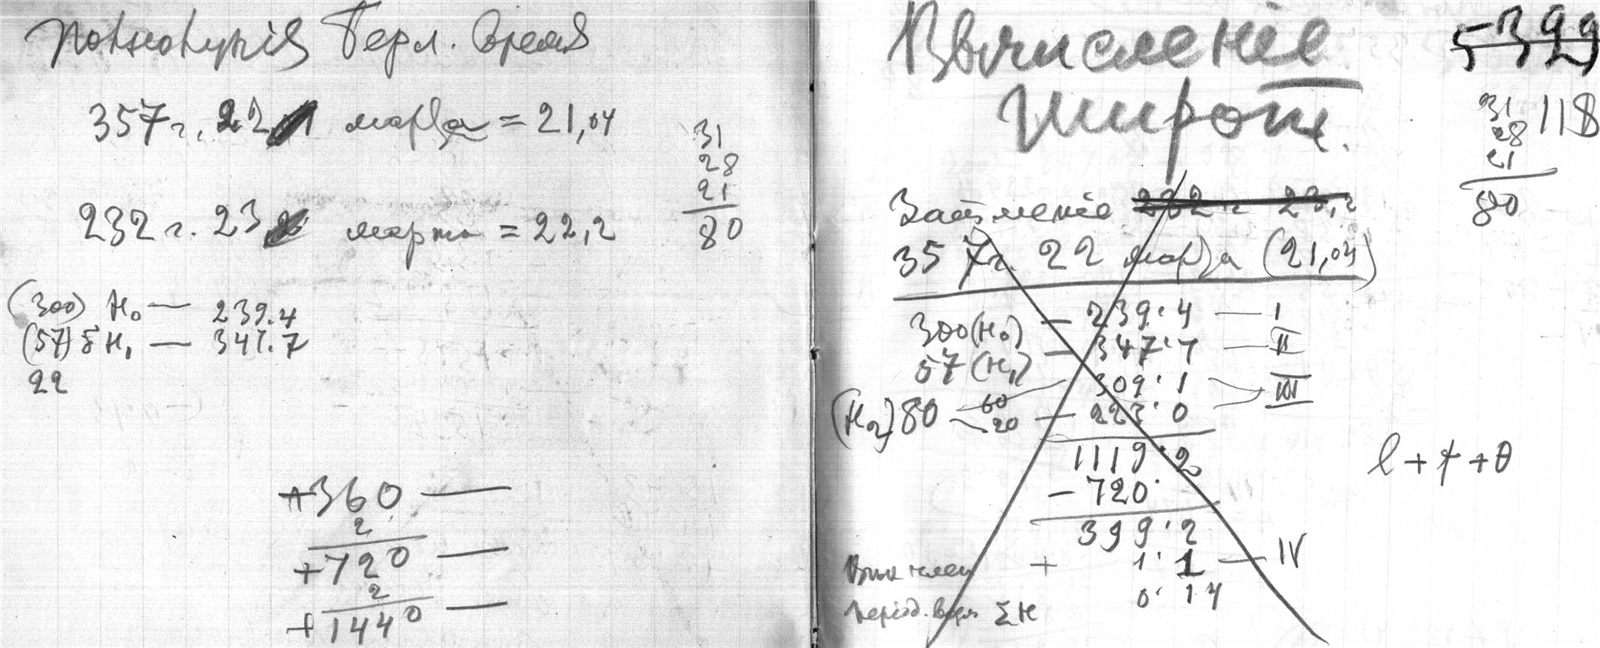 Берл. время
357 г. 22 марта = 21,04
31
28
21
80
232 г. 23 марта = 22,2
(300) H₀ — 239.4
(57) H₁ — 347.7
22
+360 —
2
+720 —
2
+1440 —
Вычисленіе
широт.
5399
118
31
28
21
80
Затменіе 232 г 23,2
357 г. 22 марта (21,04)
300 (H₀) — 239.4 — I
57 (H₁) — 347.7 — II
309.1
(H₂) 80 60 20 — 223.0 III
1119.2
- 720.
399.2
+ 1.1 — IV
0.14
період. ΣH
l + + θ